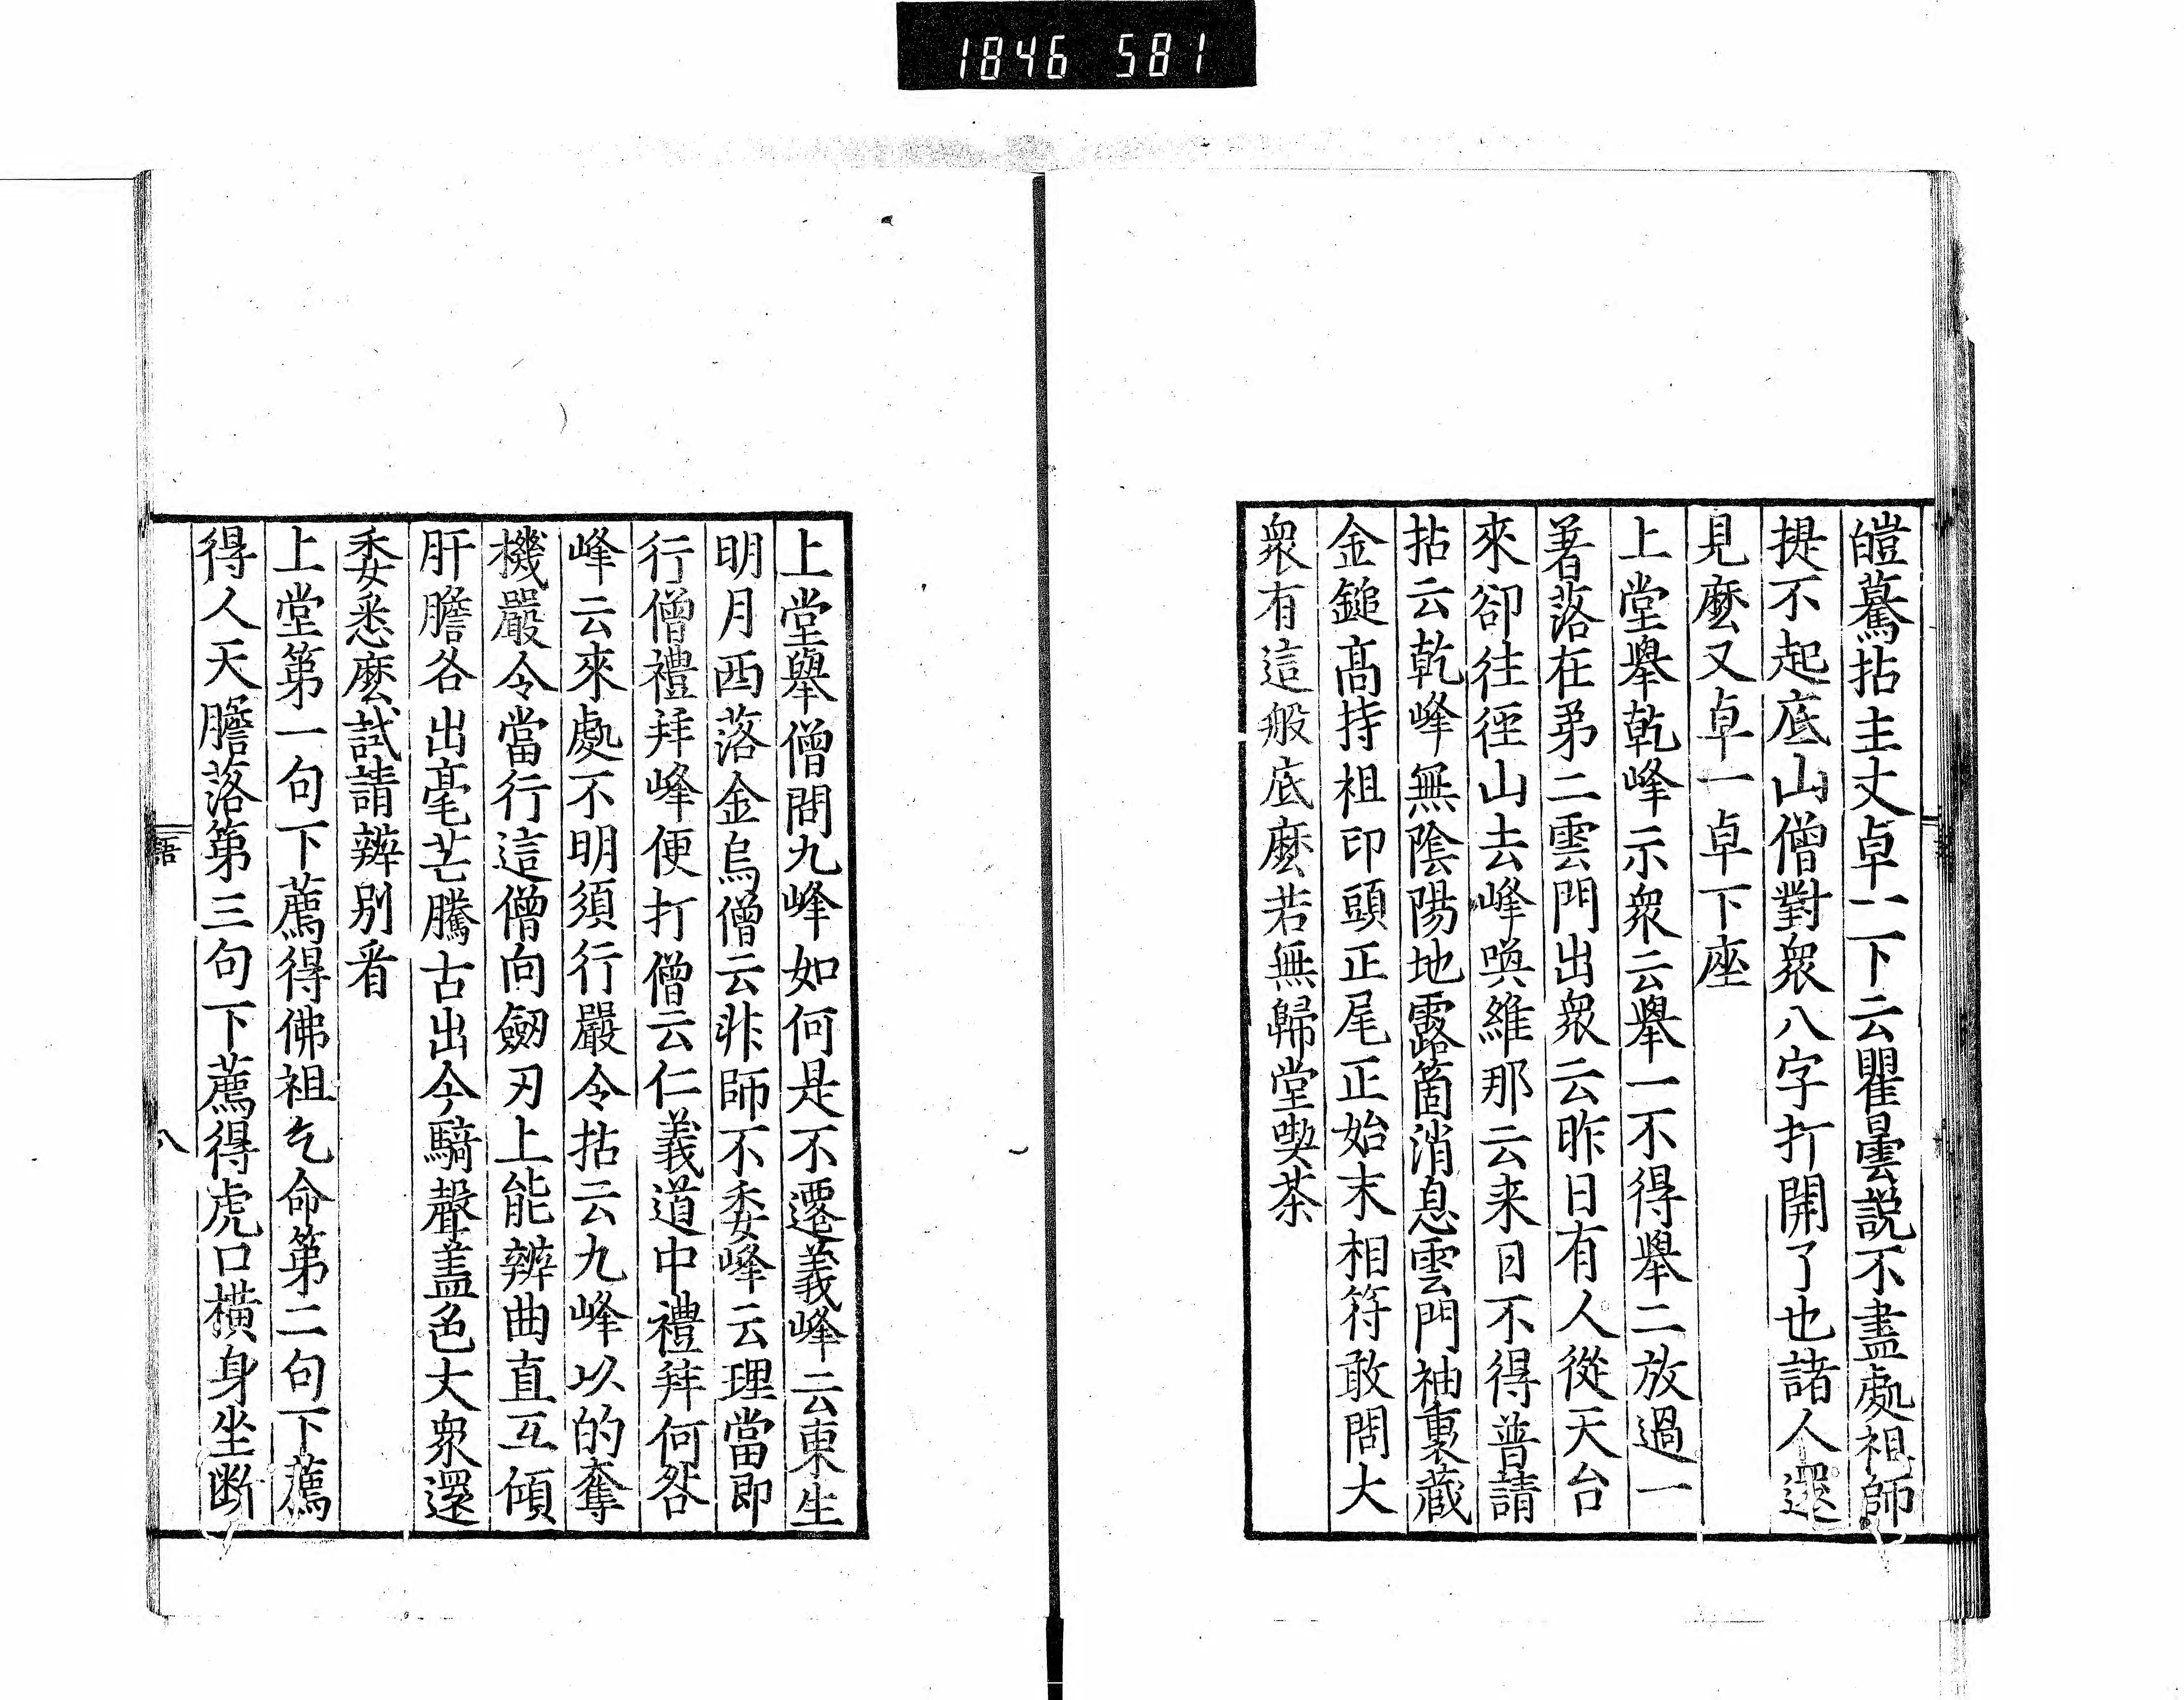 1846 581
皚驀拈主丈卓一二下云瞿曇説不盡處祖師
提不起底山僧對衆八字打開了也諸人還
見麼又卓一卓下座
上堂舉乾峰示衆云舉一不得舉二放過一
著落在第二雲門出衆云昨日有人從天台
來卻往徑山去峰喚維那云来日不得普請
拈云乾峰無陰陽地露箇消息雲門袖裏藏
金鎚髙持祖印頭正尾正始末相符敢問大
衆有這般底麼若無歸堂喫茶
上堂舉僧問九峰如何是不遷義峰云東生
明月西落金烏僧云非師不委峰云理當即
行僧禮拜峰便打僧云仁義道中禮拜何咎
峰云來處不明須行嚴令拈云九峰以的奪
機嚴令當行這僧向劒刃上能辨曲直互傾
肝膽各出毫芒騰古出今騎聲盖色大衆還
委悉麽試請辨别看
上堂第一句下薦得佛祖乞命第二句下薦
得人天膽落第三句下薦得虎口橫身坐断
語
八